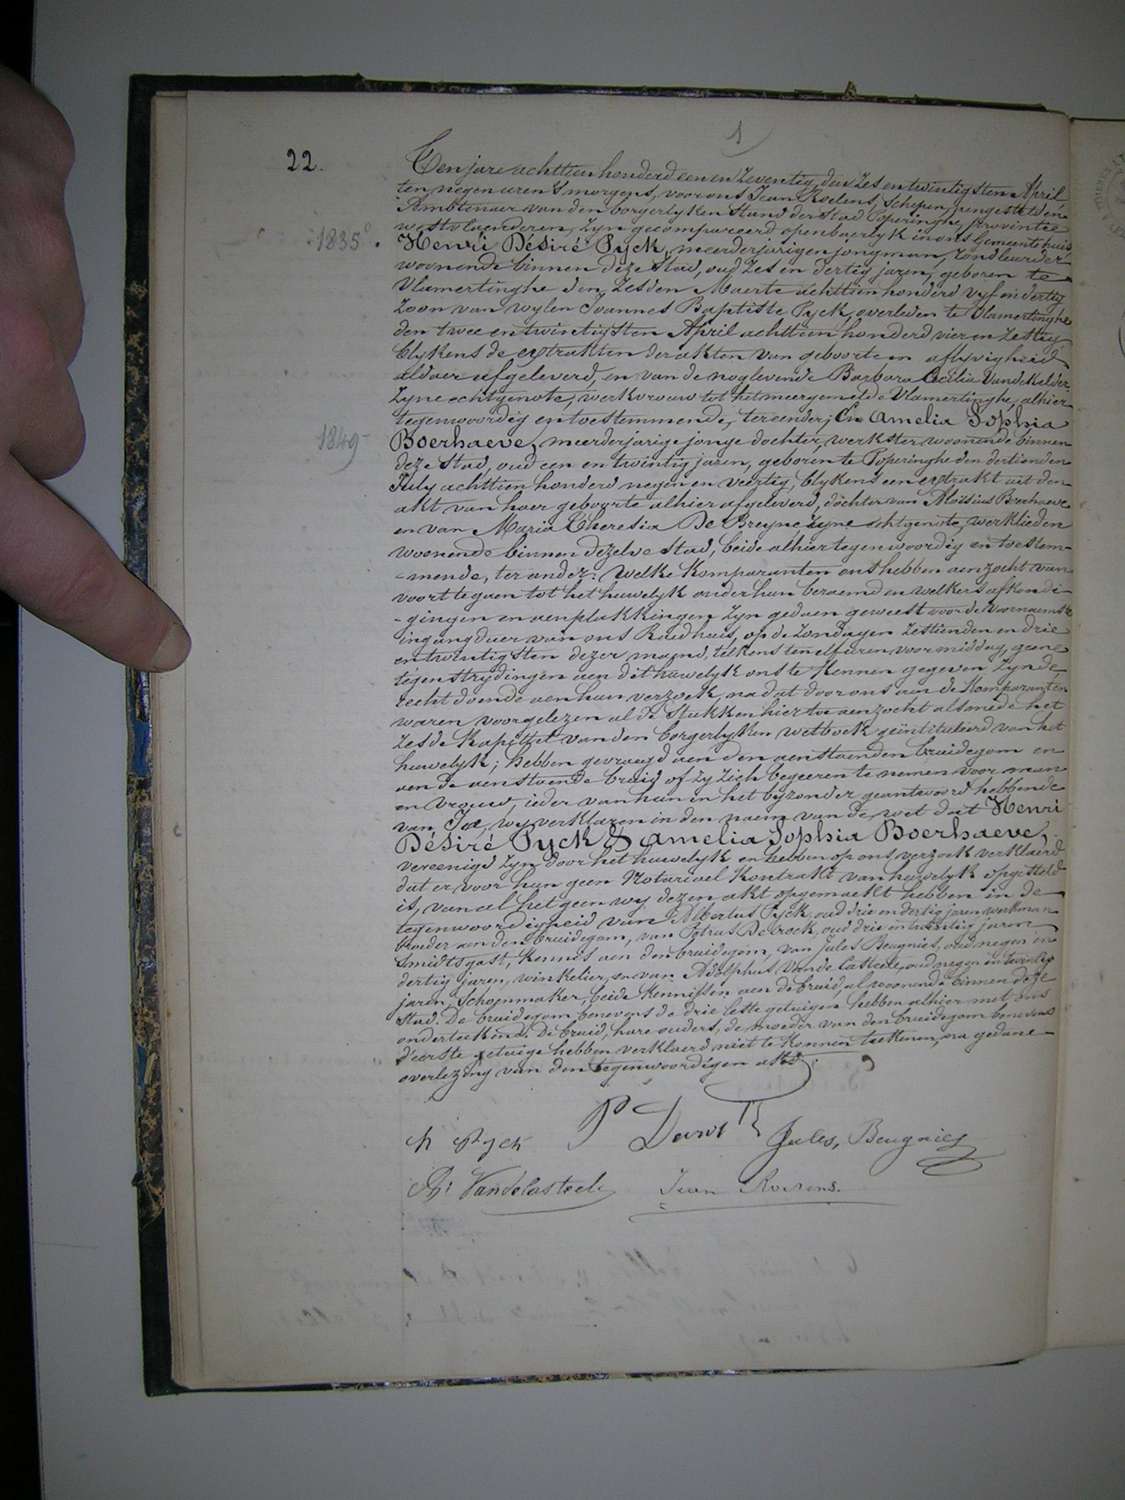 1
22.
Ten jare achttien honderd een en zeventig, den zes en twintigsten April
ten negen uren 's morgens, voor ons Jean Roelens, Schepen, aengestelden
Ambtenaer van den borgerlyken Stand der Stad Poperinghe, provintie
westvlaenderen, zyn gecompareerd openbaerlyk in ons Gemeentehuis
1835
Henri Désiré Pyck, meerderjarigen jongman,
woonende binnen deze stad, oud zes en dertig jaren, geboren te
Vlamertinghe den zesden Maerte achttien honderd vyf en dertig
zoon van wylen Joannes Baptiste Pyck, overleden te Vlamertinghe
den twee en twintigsten April achttien honderd vier en zestig
blykens de extrakten der akten van geboorte en aflyvigheid
aldaer afgeleverd, en van de noglevende Barbara Cecilia Vandekelder
zyne echtgenote, werkvrouw tot het meergemelde Vlamertinghe, alhier
tegenwoordig en toestemmende, ter eender; En Amelia Sophia
1849
Boerhaeve, meerderjarige jonge dochter, werkster woonende binnen
deze stad, oud een en twintig jaren, geboren te Poperinghe den dertienden
July achttien honderd negen en veertig, blykens een extrakt uit den
akt van haer geboorte alhier afgeleverd, dochter van Aloïsius Boerhaeve
en van Maria Theresia De Breyne zyne echtgenote, werklieden
woonende binnen dezelve Stad, beide alhier tegenwoordig en toestem-
-mende, ter ander: Welke Komparanten ons hebben aenzocht van
voort te gaen tot het huwelyk onder hun beraemd en welkers afkondi-
-gingen en aenplakkingen zyn gedaen geweest voor de voornaemste
ingangdeur van ons Raedhuis, op de zondagen zestienden en drie
en twintigsten dezer maend, telkens ten elf uren voormiddag, geene
tegenstrydingen aen dit huwelyk ons te kennen gegeven zynde
recht doende aen hun verzoek, na dat door ons aen de Komparanten
waren voorgelezen al de stukken hier toe aenzocht alsmede het
zesde kapittel van den borgerlyken wetboek geïntituleerd van het
huwelyk; hebben gevraegd aen den aenstaenden bruidegom en
aen de aenstaende bruid of zy zich begeeren te nemen voor man
en vrouw, ieder van hun in het byzonder geantwoord hebbende
van Ja, wy verklaren in den naem van de wet dat Henri
Désiré Pyck & Amelia Sophia Boerhaeve,
vereenigd zyn door het huwelyk en hebben op ons verzoek verklaerd
dat er voor hun geen Notarieel Kontrakt van huwelyk opgesteld
is, van al het geen wy dezen akt opgemaekt hebben in de
tegenwoordigheid van Albertus Pyck, oud drie en dertig jaren werkman
broeder aen den bruidegom, van Petrus oud drie en jaren
smidtsgast, kennis aen den bruidegom, van Jules Beugnies, oud negen en
dertig jaren, winkelier, en van Adolphus Vandecasteele, oud negen en twintig
jaren, schoenmaker, beide kennissen aen de bruid, al woonende binnen deze
stad. De bruidegom benevens de drie leste getuigen hebben alhier met ons
onderteekend. De bruid, hare ouders, de moeder van den bruidegom benevens
d'eerste getuige hebben verklaerd niet te konnen teekenen, na gedane
overlezing van den tegenwoordigen akt.
h Pyck
Jules, Beugnies
Vandecasteele
Jean Roelens.